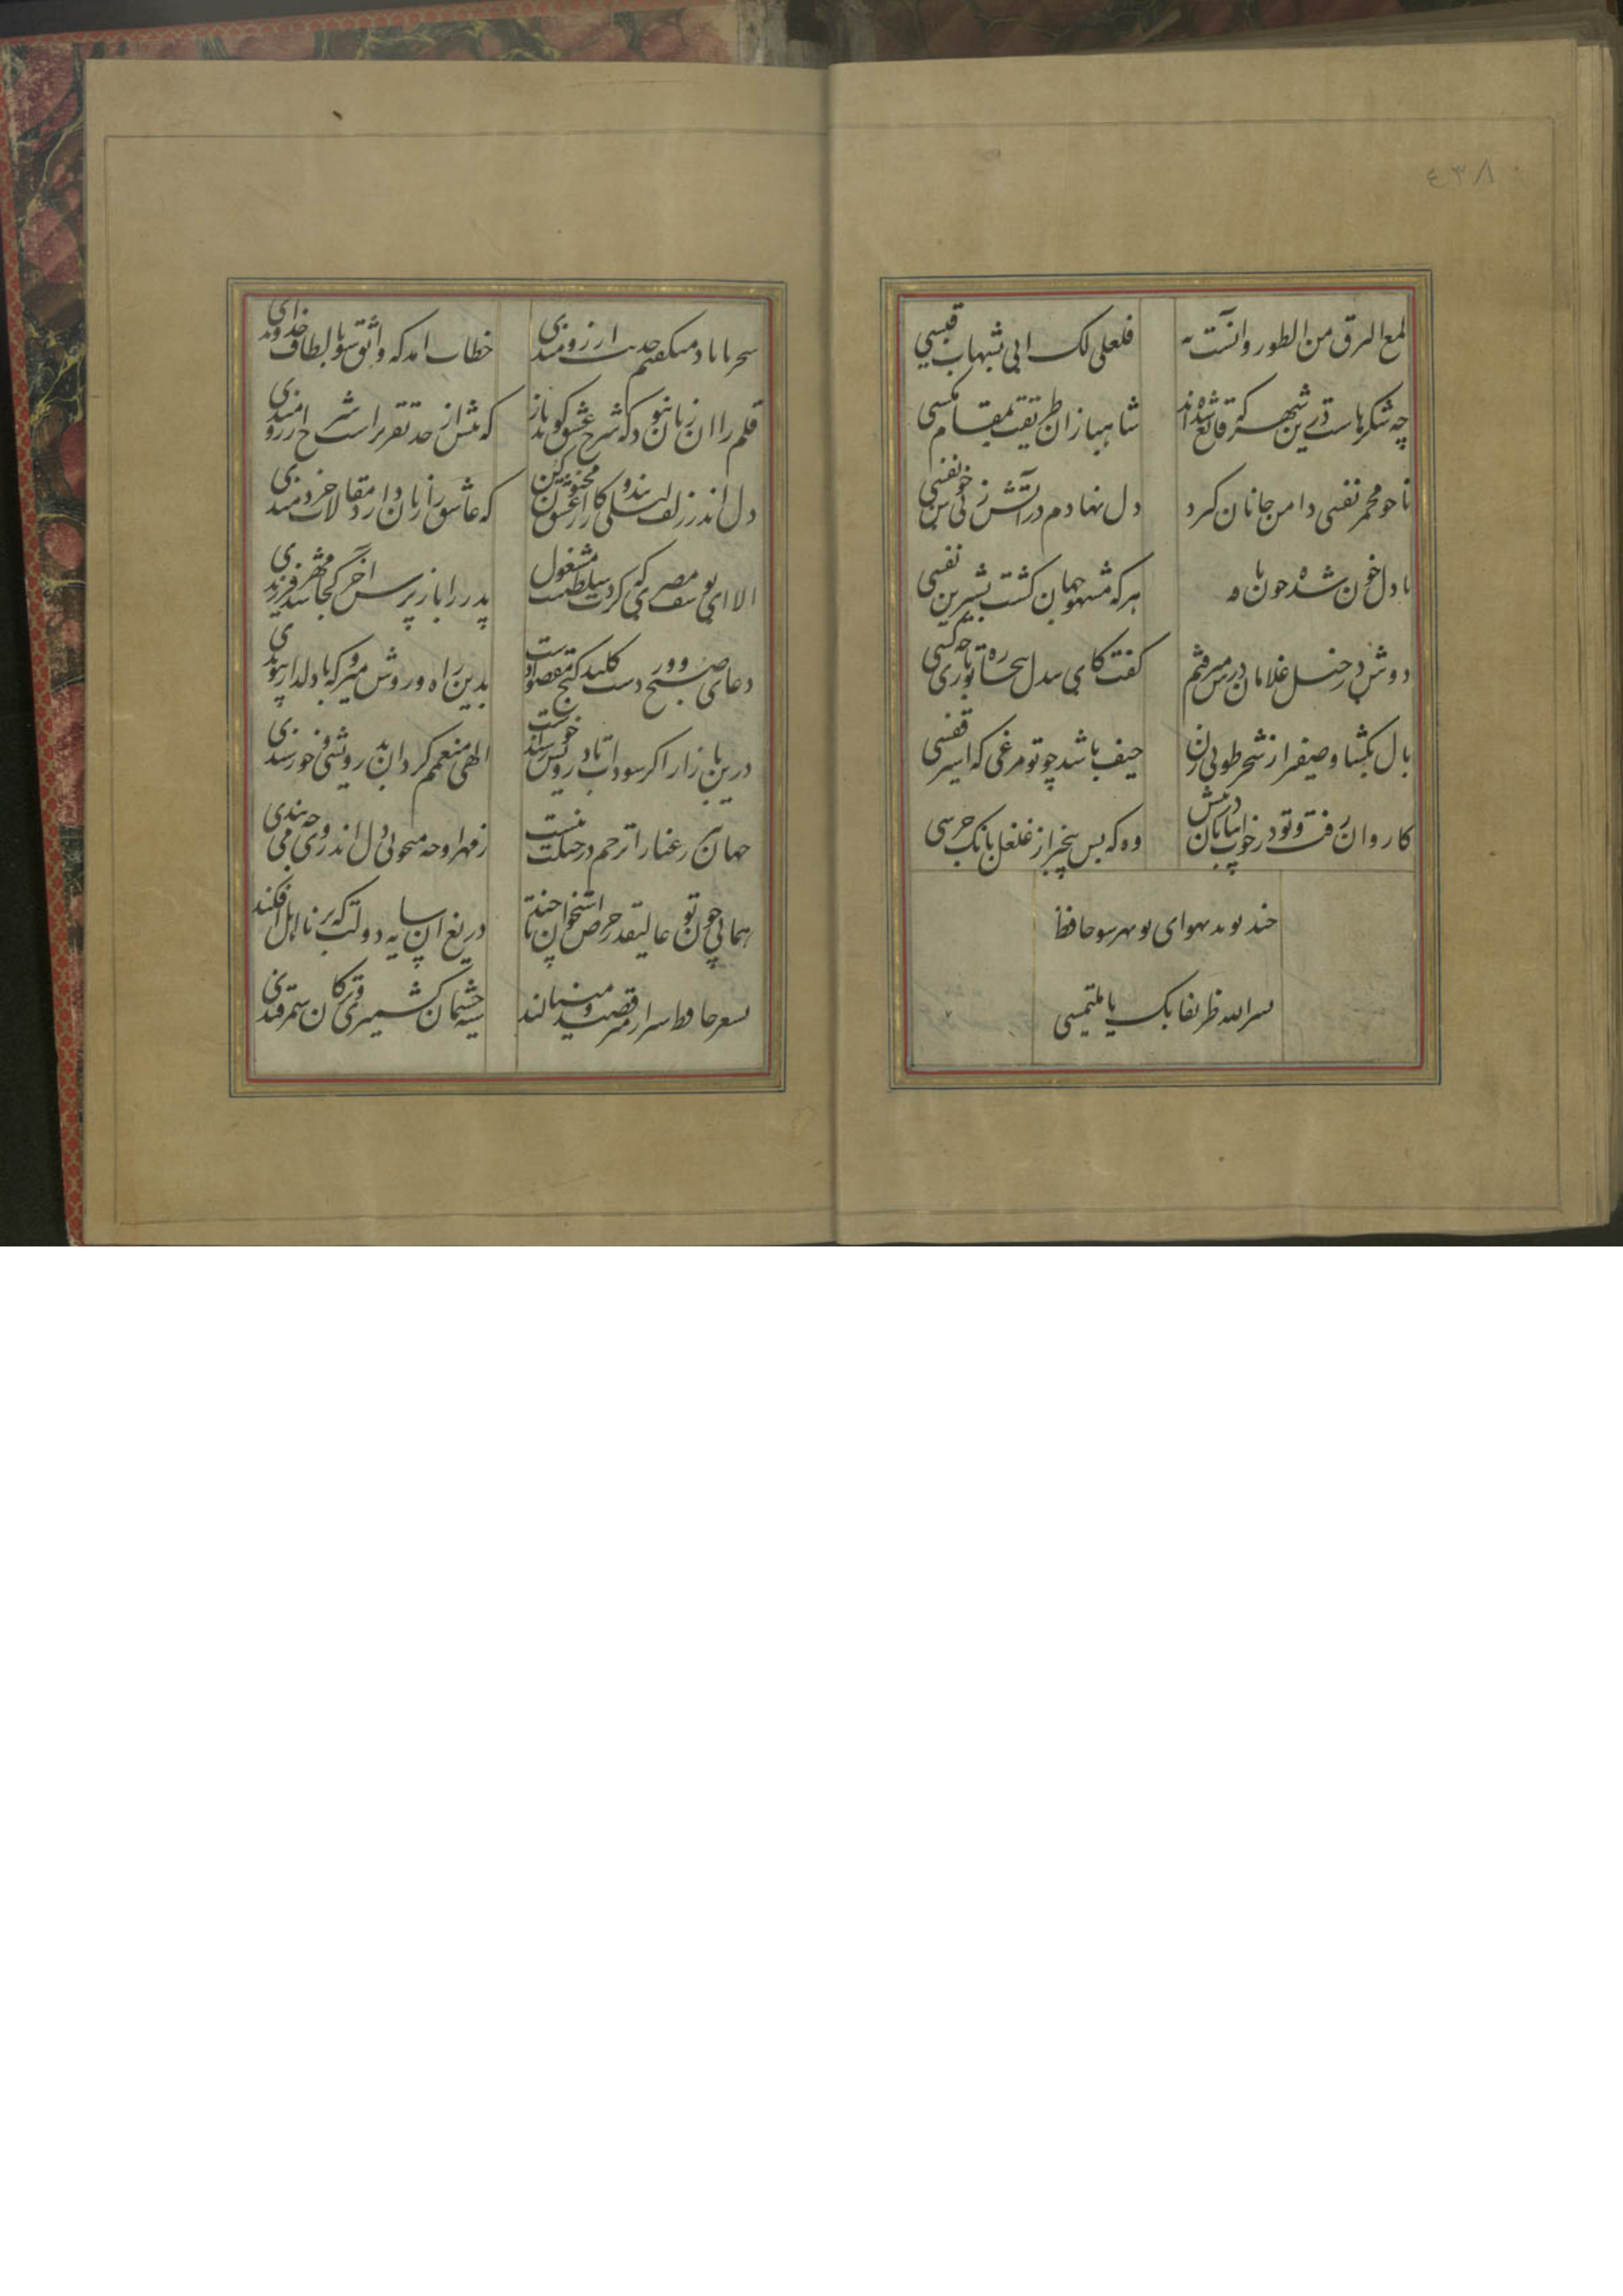 ٤٣٨
لمع البرق من الطور و آنست به
فلعلی لک آتی بشهاب قبسی
چه شکرهاست درین شهر که قانع شده‌اند
شاهبازان طریقت بمقام مکسی
تا چو مجمر نفسی دامن جانان کیرد
دل نهادم در آتش ز پی خوش نفسی
با دل خون شده چون نافه
هر که مشهور جهان کشت بشیرین نفسی
دوش در خیل غلامان درش میرفتم
کفت کای بیدل بیچاره تو باری چه کسی
بال بکشا و صفیر از شجر طوبی زن
حیف باشد چو تو مرغی که اسیر قفسی
کاروان رفت و تو در خواب و بیابان در پیش
وه که بس بیخبر از غلغل بانک جرسی
چند پوید بهوای تو بهر سو حافظ
یسر الله طریقا بک یا ملتمسی
سحر با باد میکفتم حدیث آرزومندی
خطاب آمد که واثق شو بالطاف خداوندی
قلم را آن زبان نبود که شرح عشق کوید باز
که بیش از حد تقریر است شرح آرزومندی
دل اندر زلف لیلی بند و کار از عشق مجنون کن
که عاشق را زیان دارد مقالات خردمندی
الا ای یوسف مصری که کردت سلطنت مشغول
پدر را باز پرس آخر کجا شد مهر فرزندی
دعای صبح و ورد دست کلید کنج مقصودست
بدین راه و روش میرو که با دلدار پیوندی
درین بازار اکر سودیست با درویش خرسندست
الهی منعمم کردان بدرویشی و خورسندی
جهان پیر رعنا را ترحم در جبلت نیست
ز مهر او چه میجویی دل اندر وی چه می‌بندی
همایی چون تو عالیقدر حرص استخوان تا چند
دریغ آن سایه دولت که بر نا اهل افکندی
بشعر حافظ شیراز میرقصند و مینالند
سیه چشمان کشمیری و ترکان سمرقندی